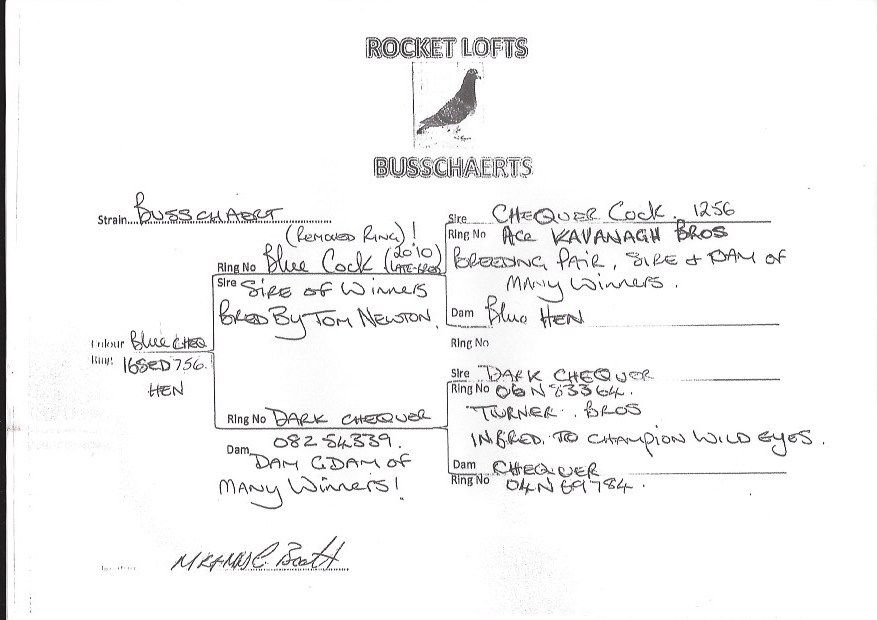 ROCKET LOFTS
BUSSCHAERTS
Strain... BUSSCHAERT
(REMOVED RING)!
Ring No Blue Cock (2010 LATE-BRED)
Sire SIRE OF WINNERS
BRED BY TOM NEWTON.
Sire CHEQUER COCK. 1256
Ring No ACE KAVANAGH BROS
BREEDING PAIR, SIRE & DAM OF
MANY WINNERS.
Dam Blue HEN
Ring No
Colour Blue CHEQ
Ring: 16SED756.
HEN
Ring No DARK CHEQUER
08Z54339.
Dam DAM GDAM OF
MANY WINNERS!
Sire DARK CHEQUER
Ring No 06N83364.
TURNER. BROS
INBRED. TO CHAMPION WILD EYES.
Dam CHEQUER
Ring No 04N69784.